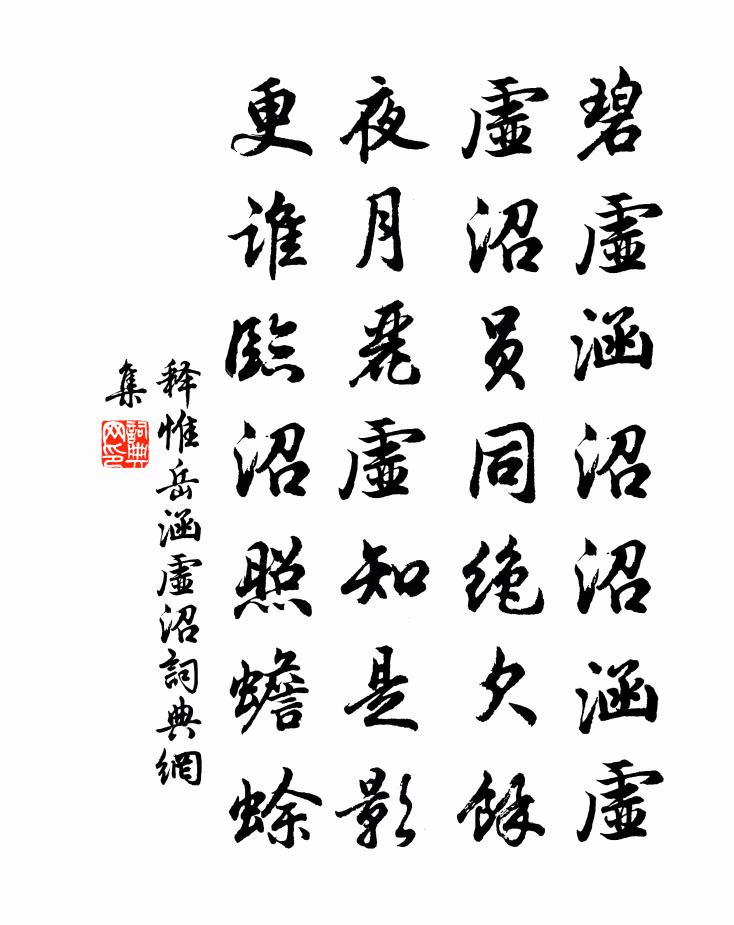 碧虛涵沼沼涵虛
虛沼員同絶欠餘
夜月麗虛知是影
更誰臨沼照蟾蜍
释惟岳涵虛沼詞典網
集
詞典
网印